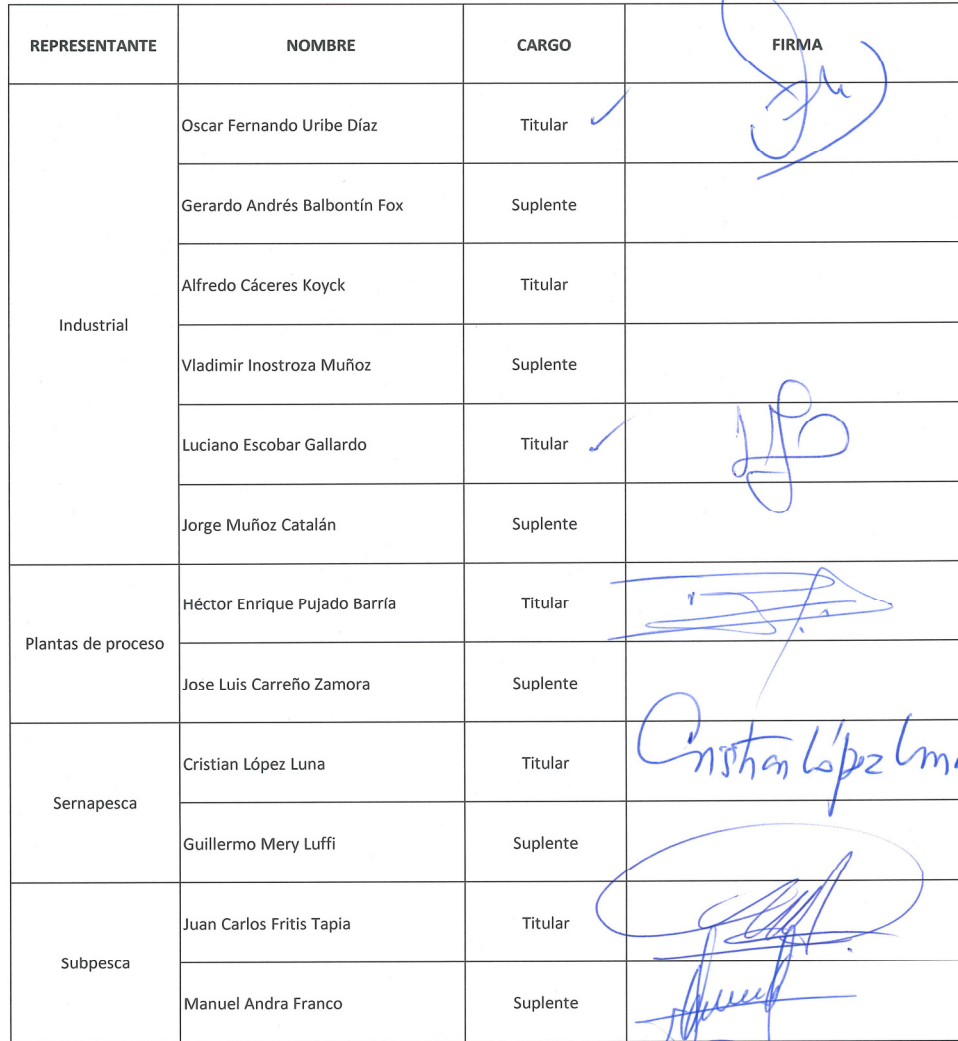 REPRESENTANTE NOMBRE CARGO FIRMA
Industrial
Oscar Fernando Uribe Díaz Titular
Gerardo Andrés Balbontín Fox Suplente
Alfredo Cáceres Koyck Titular
Vladimir Inostroza Muñoz Suplente
Luciano Escobar Gallardo Titular
Jorge Muñoz Catalán Suplente
Plantas de proceso
Héctor Enrique Pujado Barría Titular
Jose Luis Carreño Zamora Suplente
Sernapesca
Cristian López Luna Titular Cristian López
Guillermo Mery Luffi Suplente
Subpesca
Juan Carlos Fritis Tapia Titular
Manuel Andra Franco Suplente